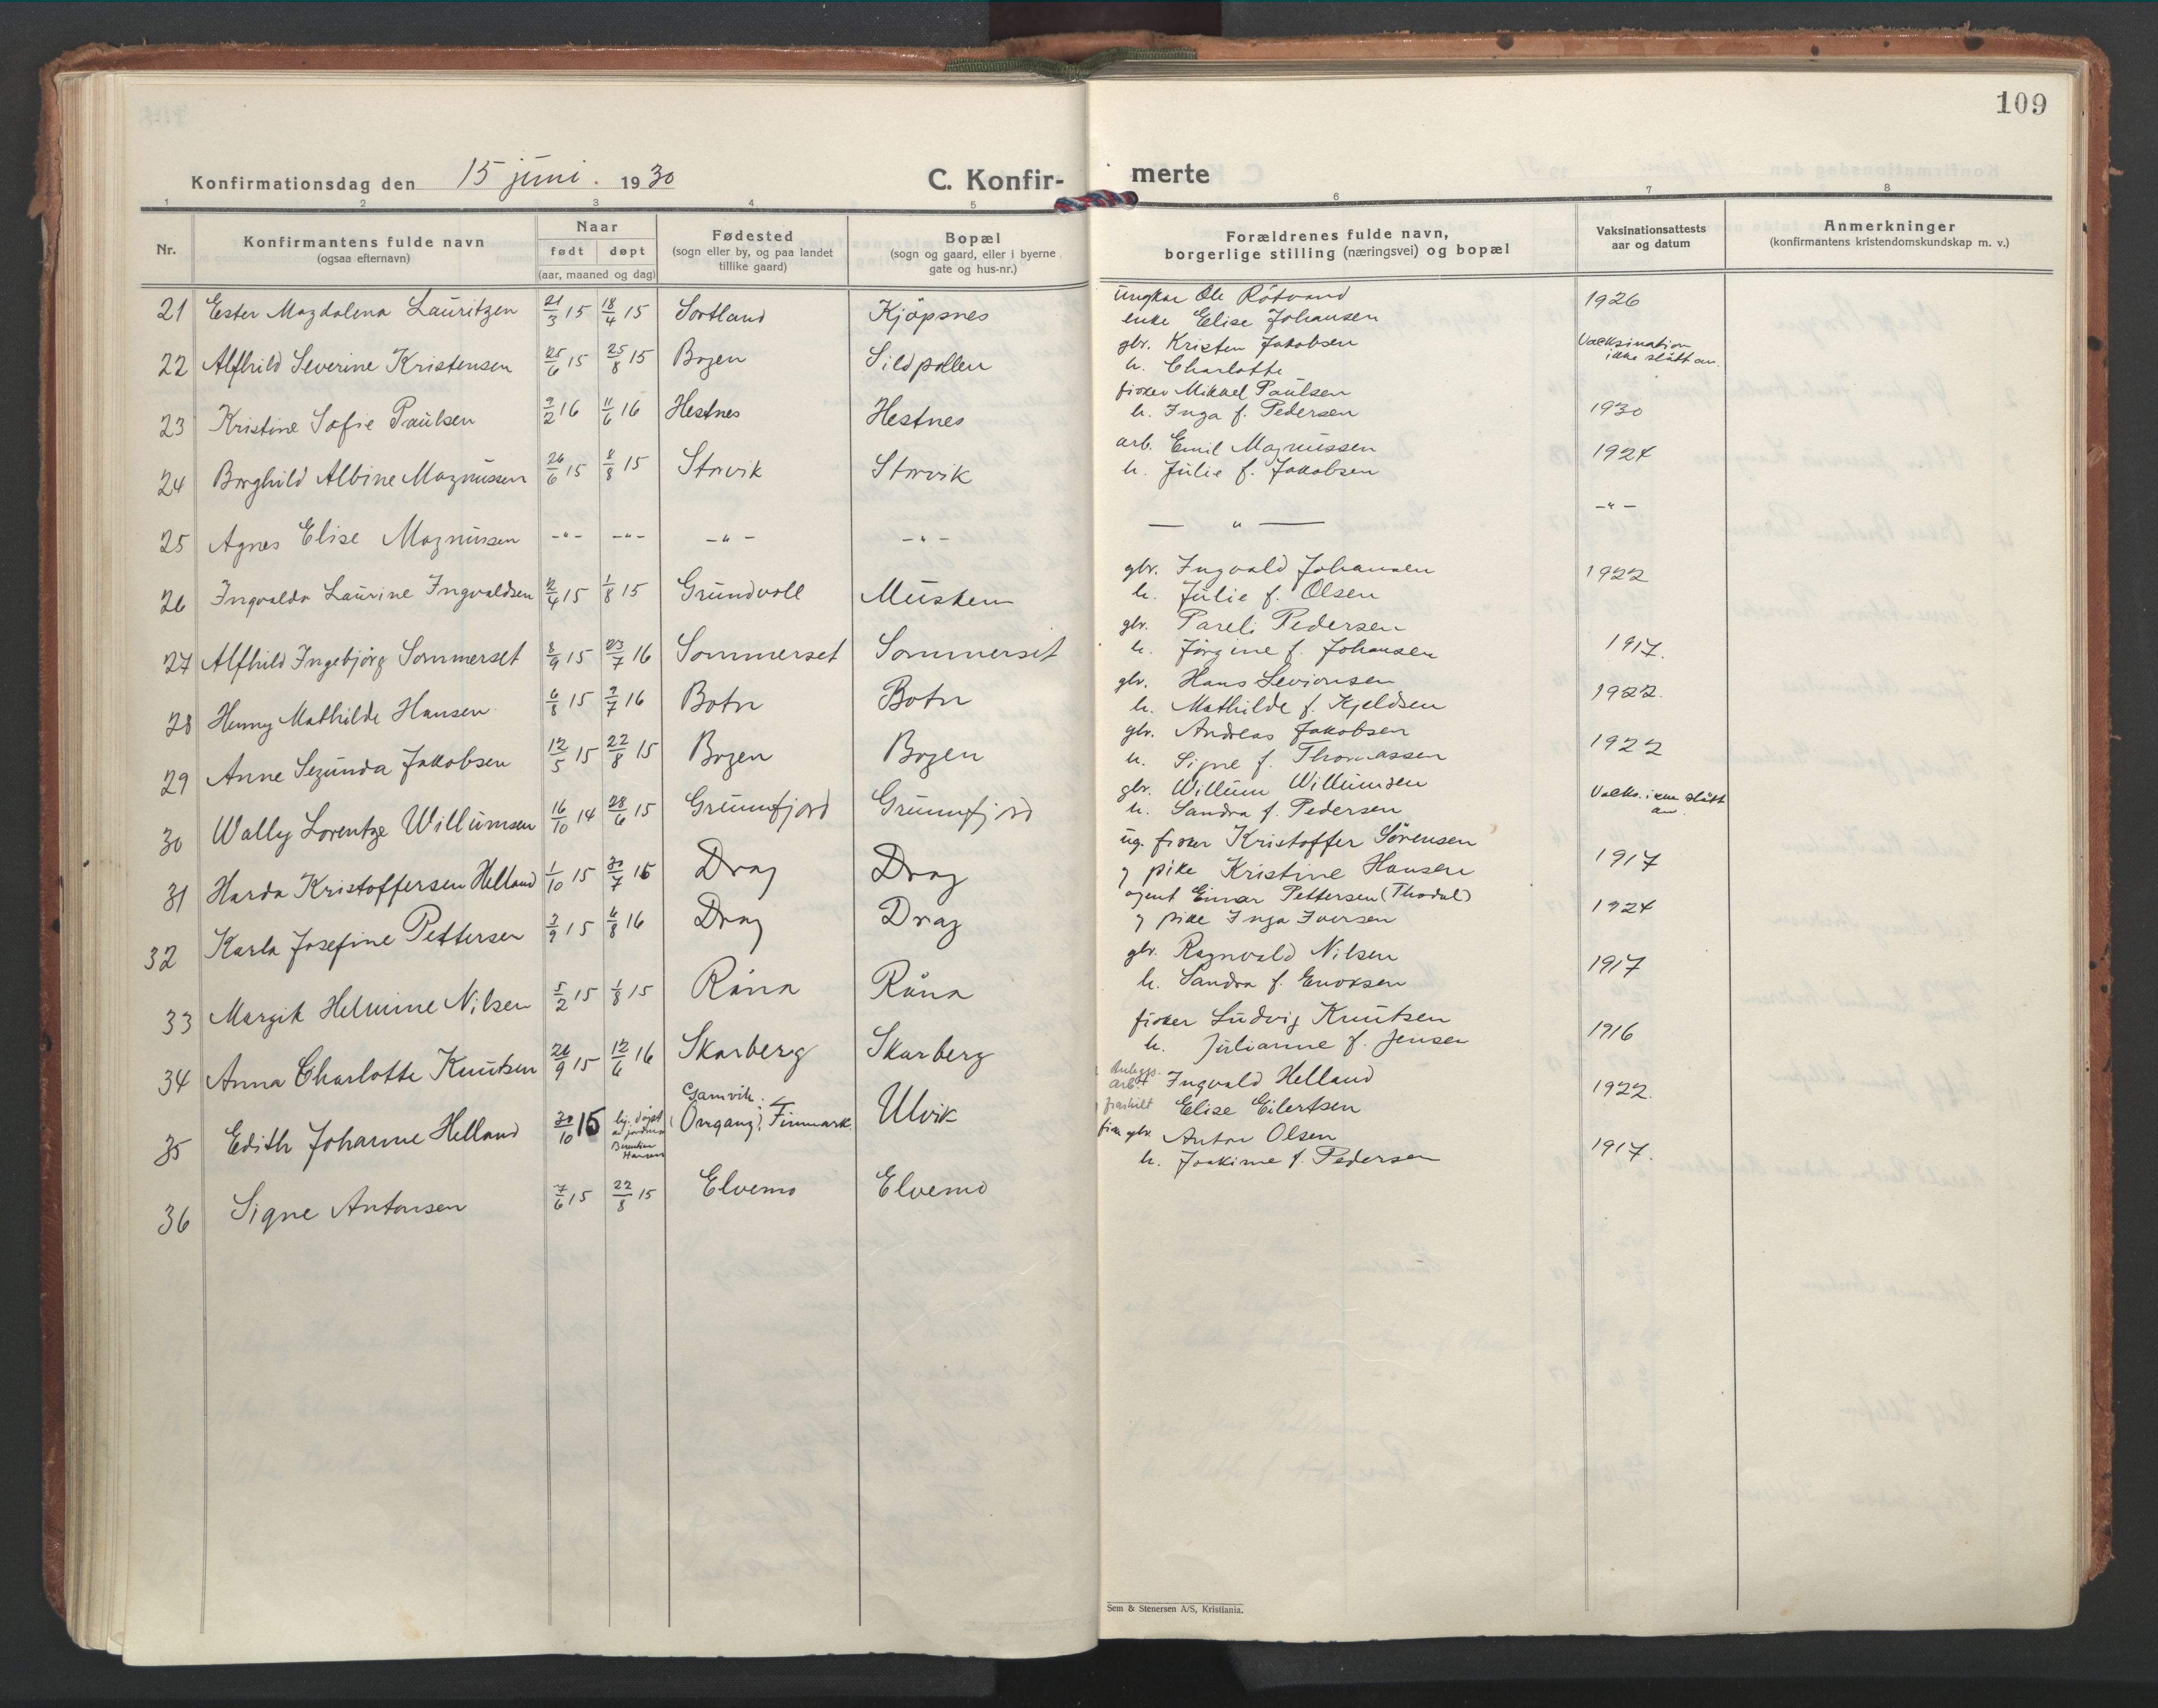 109
Konfirmationsdag den 15 juni. 1930
C. Konfir- merte
1 2 3 4 5 6 7 8
Nr.
Konfirmantens fulde navn
(ogsaa efternavn)
Naar
født døpt
(aar, maaned og dag)
Fødested
(sogn eller by, og paa landet
tillike gaard)
Bopæl
(sogn og gaard, eller i byerne
gate og hus-nr.)
Forældrenes fulde navn,
borgerlige stilling (næringsvei) og bopæl
Vaksinationsattests
aar og datum
Anmerkninger
(konfirmantens kristendomskundskap m. v.)
21 Ester Magdalena Lauritzen 21/3 15 18/4 15 Sortland Kjöpsnes ungkar Ole Rötvand 1926
enke Elise Johansen
22 Alfhild Severine Kristensen 25/6 15 25/8 15 Bogen Sildpollen gbr. Kristen Jakobsen Vaksination
h. Charlotte ikke slått an.
23 Kristine Sofie Paulsen 9/2 16 11/6 16 Hestnes Hestnes fisker Mikael Paulsen
h. Inga f. Pedersen 1930
24 Borghild Albine Magnussen 26/6 15 8/8 15 Storvik Storvik arb. Emil Magnussen 1924
h. Julie f. Jakobsen
25 Agnes Elise Magnussen -"- -"- -"- -"- — " — -"-
26 Ingvalda Laurine Ingvaldsen 12/4 15 1/8 15 Grundvoll Musken gbr. Ingvald Johansen 1922
h. Julie f. Olsen
27 Alfhild Ingebjörg Sommerset 8/9 15 23/7 16 Sommerset Sommerset gbr. Pareli Pedersen
h. Jörgine f. Johansen 1917.
28 Henny Mathilde Hansen 6/8 15 9/7 16 Botn Botn gbr. Hans Sevionsen 1922.
h. Mathilde f. Kjeldsen
29 Anne Segunda Jakobsen 12/5 15 22/8 15 Bogen Bogen gbr. Andreas Jakobsen 1922
h. Signe f. Thomassen
30 Wally Lorentze Willumsen 16/10 14 28/6 15 Grunnfjord Grunnfjord gbr. Willum Willumsen Vaks. ikke slått
h. Sandra f. Pedersen an
31 Harda Kristoffersen Helland 1/10 15 30/7 16 Drag Drag ug. fisker Kristoffer Sörensen 1917
g pike Kristine Hansen
32 Karla Josefine Pettersen 3/9 15 6/8 16 Drag Drag agent Einar Pettersen (Thodal) 1924
g pike Inga Iversen
33 Margit Helmine Nilsen 5/2 15 1/8 15 Råna Råna gbr. Ragnvald Nilsen 1917
h. Sandra f. Enoksen
34 Anna Charlotte Knutsen 26/9 15 12/6 16 Skarberg Skarberg fisker Ludvig Knutsen 1916
h. Julianne f. Jensen
35 Edith Johanne Helland 30/10 15 hj. döpt Gamvik Ulvik Anleggs-arb. Ingvald Helland 1922.
Hansen (Omgang), Finmark. fraskilt Elise Eilertsen
36 Signe Antonsen 7/6 15 22/8 15 Elvemo Elvemo gbr. Anton Olsen 1917.
h. Joakime f. Pedersen
Sem & Stenersen A/S, Kristiania.